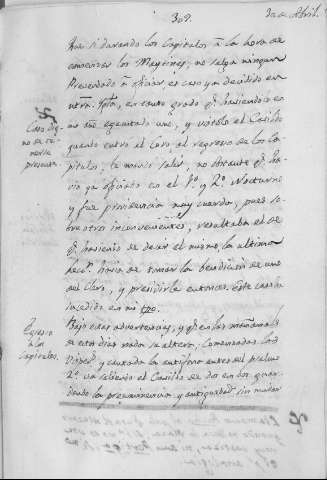 309.
30 de Abril.
Que si durando los Capitulos à la hora de
comenzar los Maytines, no salga ningun
Presentado à oficiar, es caso ya decidido en
ntra. Ygta, en cuyo grado
un año egecutado uno, y vistolo el Cavildo
quando entró al Coro, al regreso de los Ca-
pitulos, le mandó salir, no obstante qe ha-
via ya oficiado en el 1º y 2º Nocturno
y fue providencia muy cuerda, pues so-
bre otros inconvenientes, resultaba el de
qe haviendo de decir el mismo la ultima
lecn havia de tomar la bendicion de uno
del Clero, y presidirle entonces. Este caso ha
sucedido en mi tpo.
Caso dig-
no de te-
nerse
presente.
Bajo estas advertencias, y qe en las mañanas
de estos dias nada se altera, comenzadas las
y cantada la antifona antes del Psalmo
2º va saliendo el Cavildo de dos en dos guar-
dando la preeminencia y antiguedad sin mudar
Egreso
à los
Capitulos.